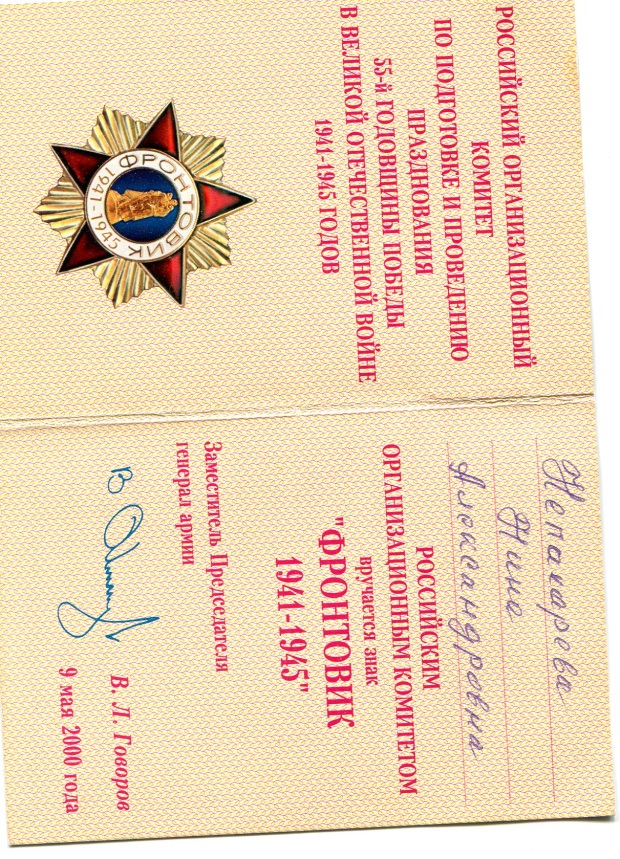 РОССИЙСКИЙ ОРГАНИЗАЦИОННЫЙ
КОМИТЕТ
ПО ПОДГОТОВКЕ И ПРОВЕДЕНИЮ
ПРАЗДНОВАНИЯ
55-й ГОДОВЩИНЫ ПОБЕДЫ
В ВЕЛИКОЙ ОТЕЧЕСТВЕННОЙ ВОЙНЕ
1941-1945 ГОДОВ
ФРОНТОВИК
1941-1945
Нина
Александровна
РОССИЙСКИМ
ОРГАНИЗАЦИОННЫМ КОМИТЕТОМ
вручается знак
"ФРОНТОВИК
1941-1945"
Заместитель Председателя
генерал армии
В. Л. Говоров
9 мая 2000 года